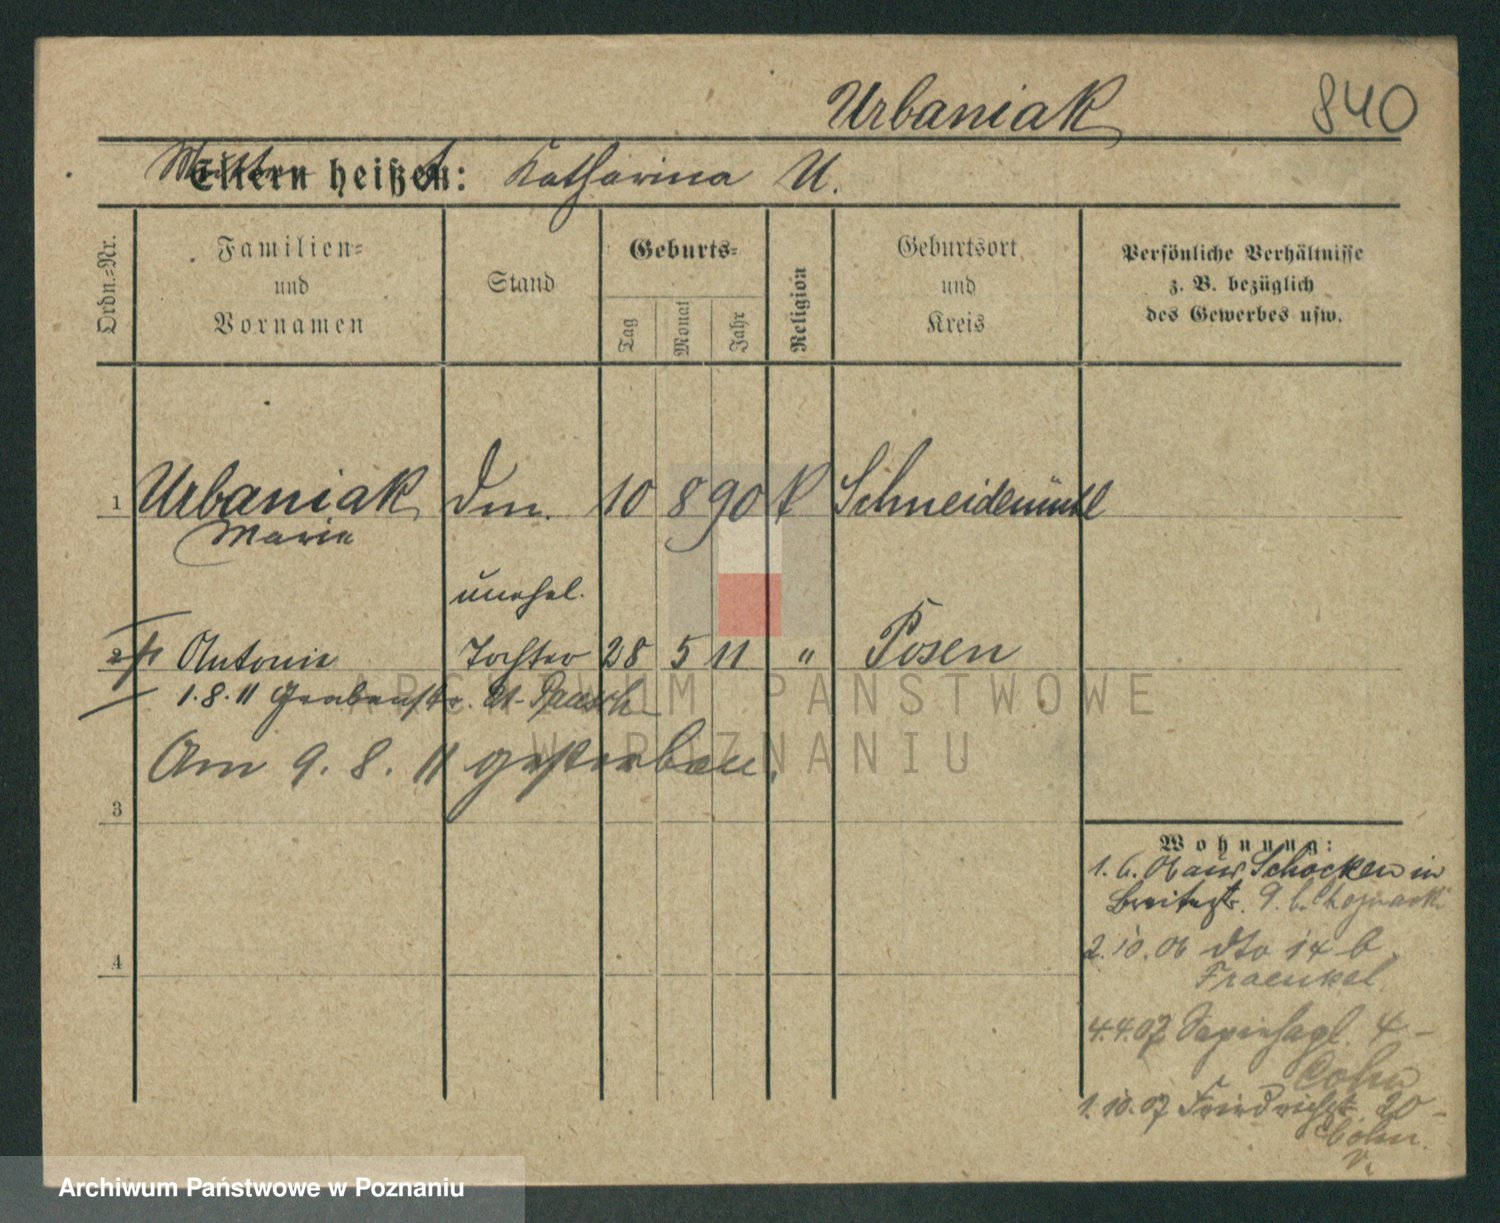 Urbaniak 840
Mutter
Eltern heißen: Katharina U.
Ordn.-Nr.
Familien-
und
Vornamen
Stand
Geburts-
Tag
Monat
Jahr
Religion
Geburtsort
und
Kreis
Persönliche Verhältnisse
z. B. bezüglich
des Gewerbes usw.
1 Urbaniak Dm. 10 8 90 k Schneidemühl
Marie
unehel.
2 Antonie Tochter 28 5 11 " Posen
1.8.11 Grabenstr.
Am 9. 8. 11 gestorben.
3
4
Wohnung:
1. 6. 06 aus Schocken in
Breitestr. 9. b.
2.10.06 dto 14 b.
Fraenkel
4.4.07 Sapiehapl. 4 -
Cohn
1.10.07 Friedrichstr. 20 -
Cohn.
ARCHIWUM PAŃSTWOWE
W POZNANIU
Archiwum Państwowe w Poznaniu